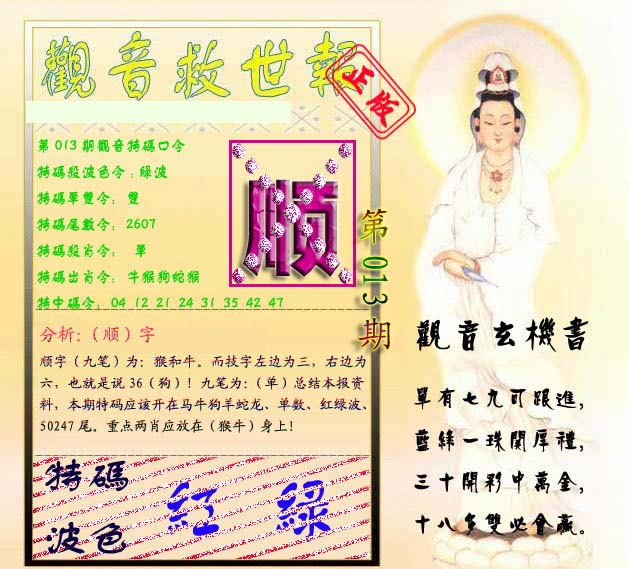 觀音救世報
正版
第013期觀音特碼口令
特碼殺波色令:綠波
特碼單雙令: 雙
特碼尾數令: 2607
特碼殺肖令: 單
特碼出肖令: 牛猴狗蛇猴
特中碼令: 04 12 21 24 31 35 42 47
顺
第013期
分析:（顺）字
顺字（九笔）为：猴和牛。而技字左边为三，右边为
六，也就是说36（狗）！九笔为:（单）总结本报资
料，本期特码应该开在马牛狗羊蛇龙、单数、红绿波、
50247尾。重点两肖应放在（猴牛）身上！
特碼
波色
红 绿
觀音玄機書
單有七九可跟進，
藍綠一珠関厚禮，
三十開彩中萬金，
十八多雙必會贏。